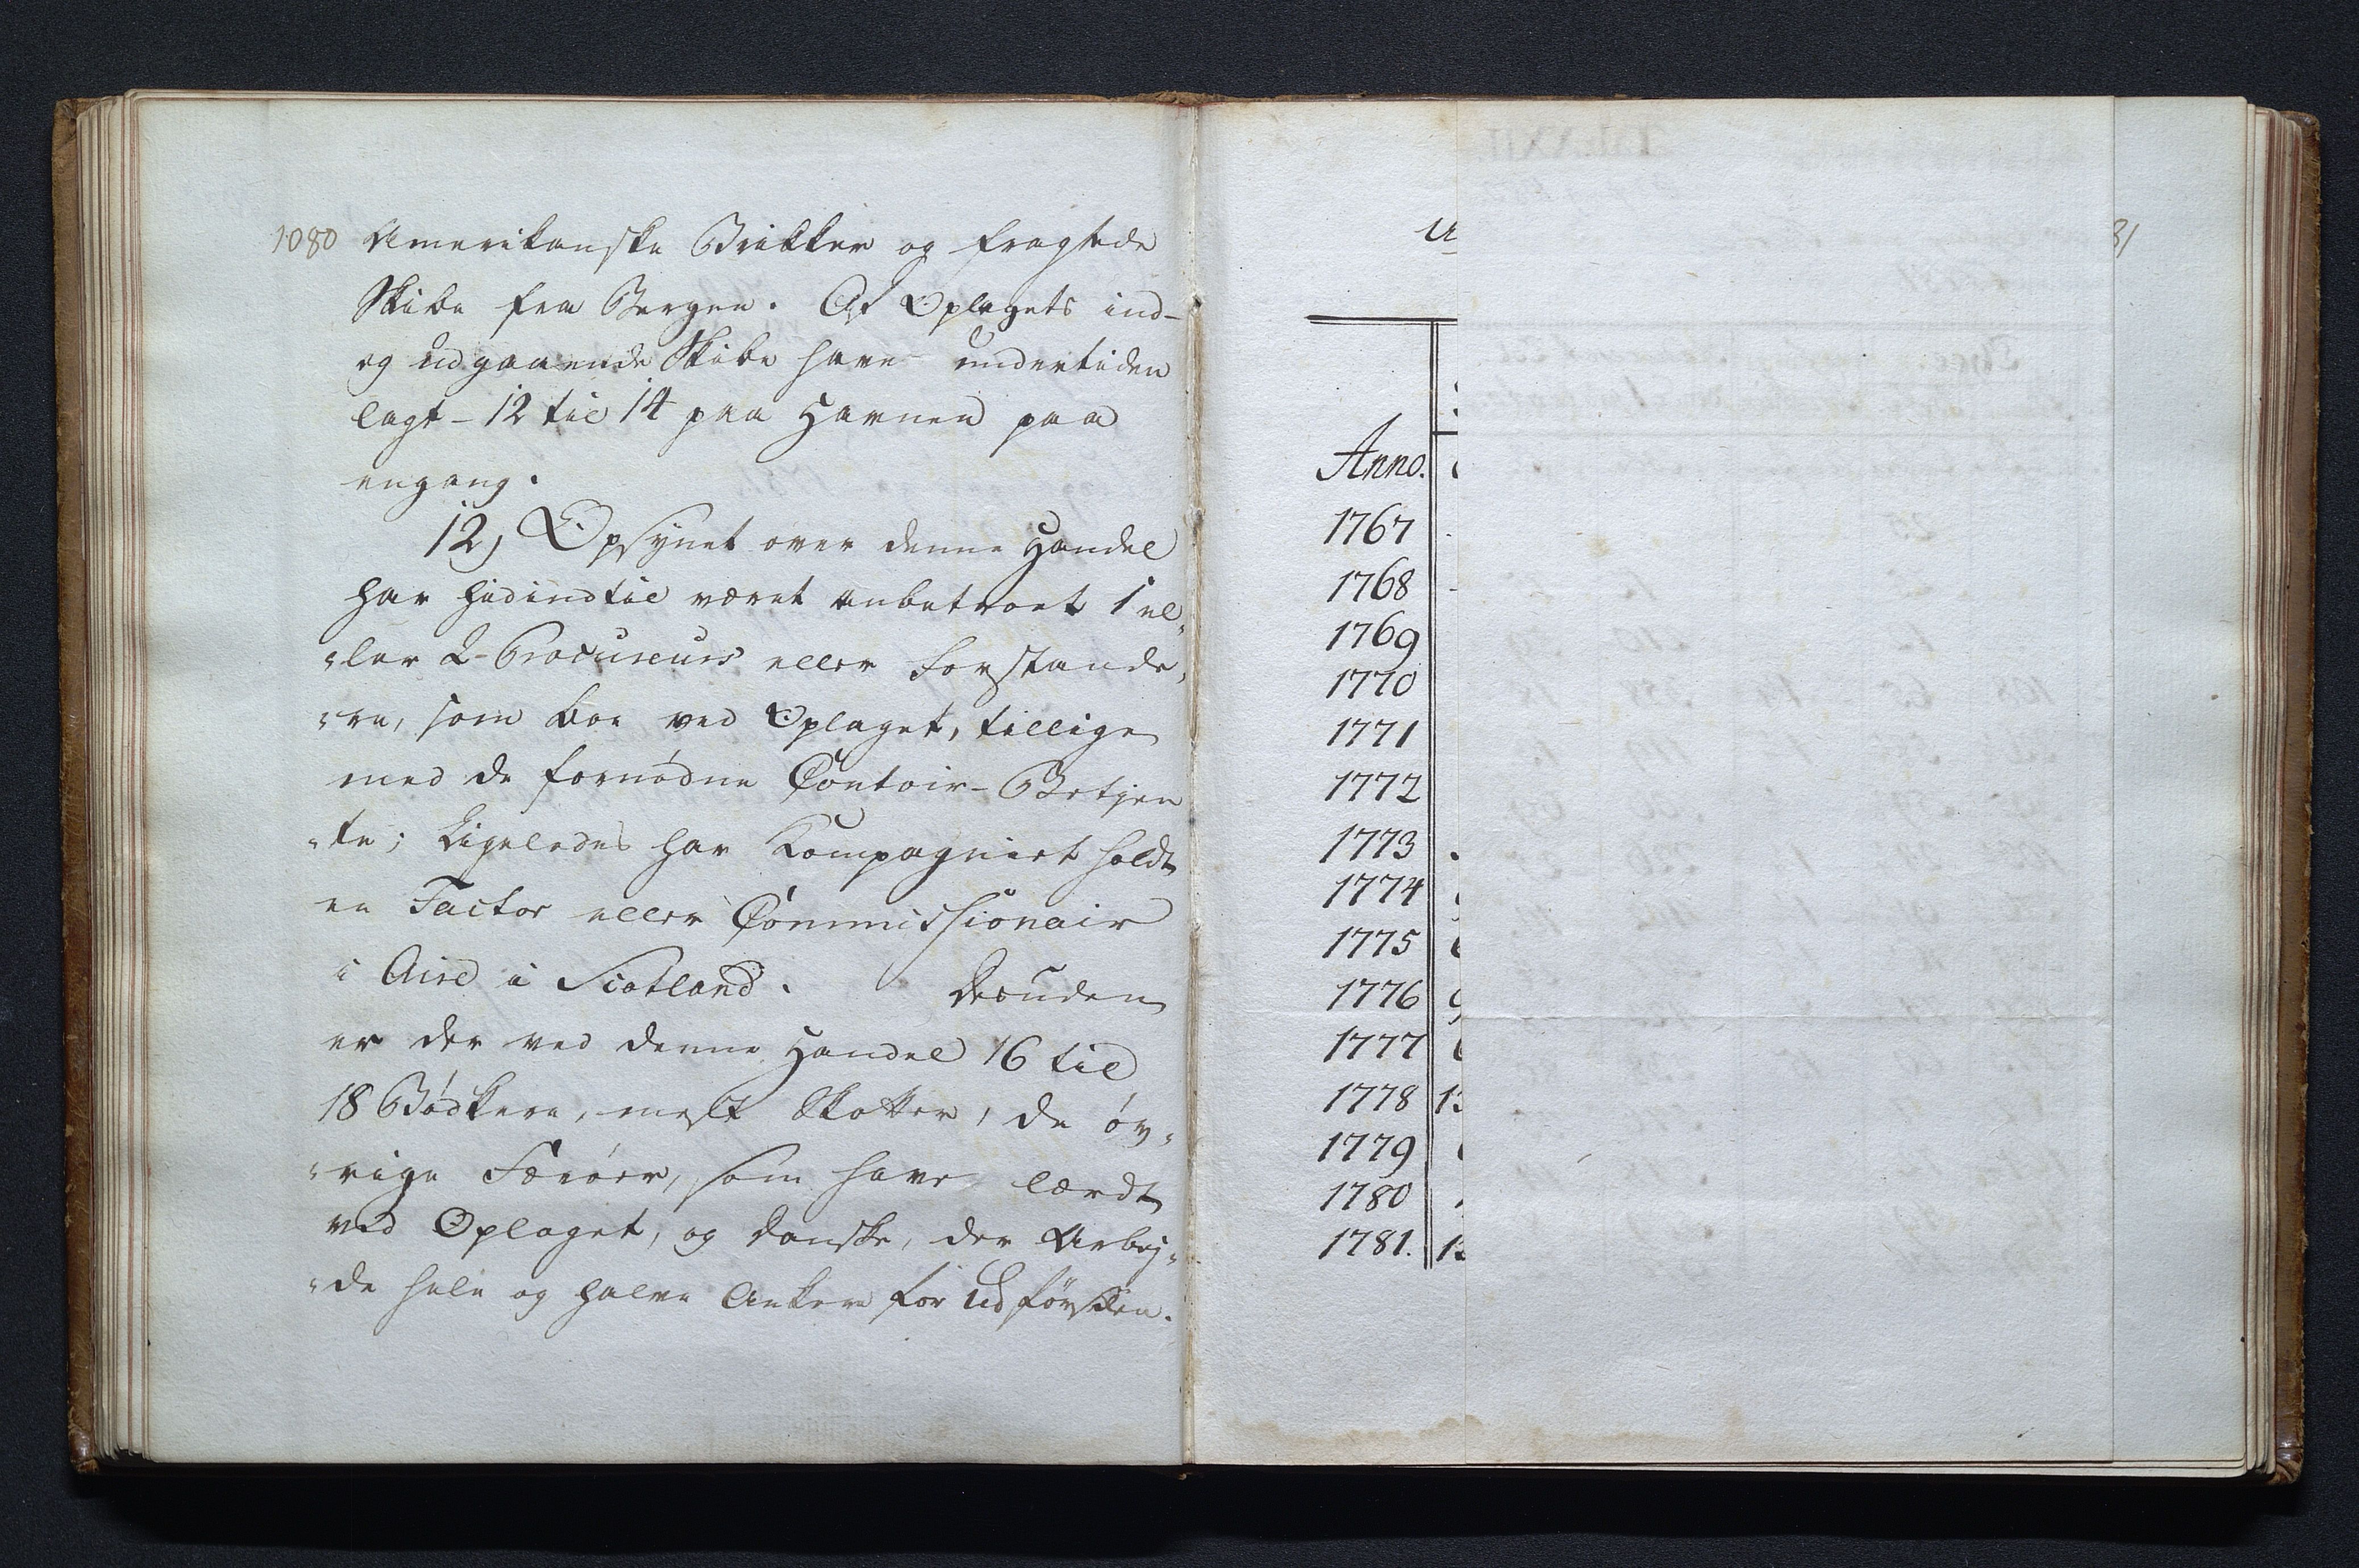 1080 Amerikanske Brikker og fragtede
Skibe fra Bergen. Af Oplagets ind-
og udgaaende Skibe have undertiden
lagt - 12 til 14 paa Havnen paa
engang.
12) Opsynet over denne Handel
har hidindtil været anbetroet 1 el„
„ler 2- Procureurs eller Forstande„
„re, som boe ved Oplaget, tillige
med de fornødne Contoir-Betjen
„te; Ligeledes har Kompagniet holdt
en Factor eller Commissionair
i Aire i Scotland. Desuden
er der ved denne Handel 16 til
18 Bødkere, mest Skotter, de øv„
„rige Færøer, som have lærdt
ved Oplaget, og Danske, der Arbej„
„de hele og halve Ankere for Udførselen.
U
Anno.
1767
1768
1769
1770
1771
1772
1773
1774
1775
1776
1777
1778
1779
1780
1781.
81